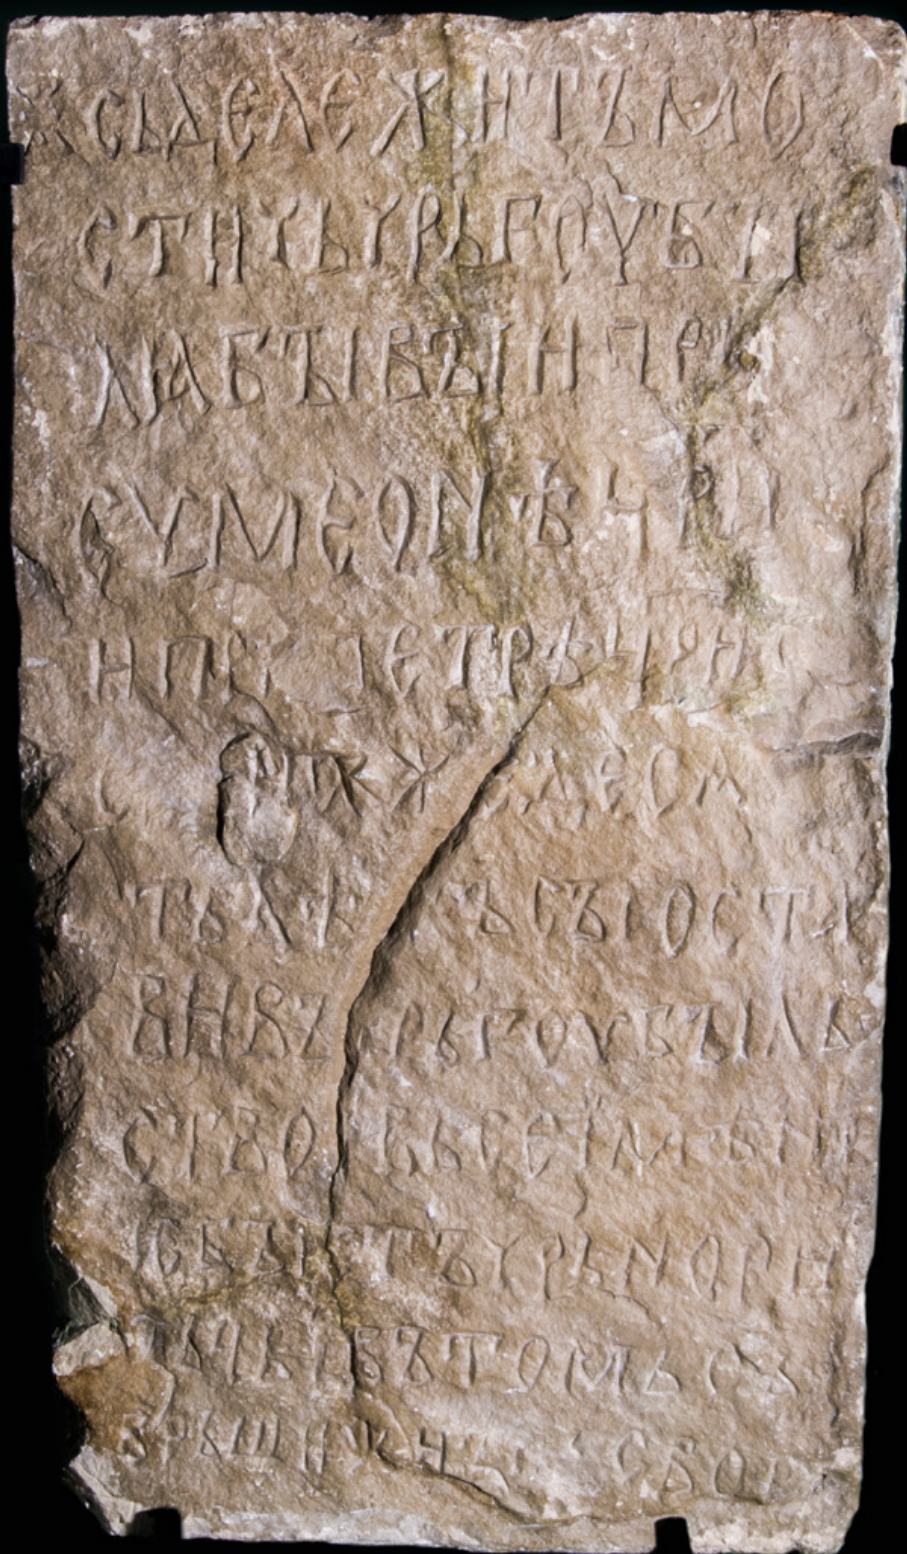 Ж СЬДЕЛЕЖИТЪМО
СТИЧЬЧРЬГОУБЪІ
ЛꙖБЪІВЪІИПРИ
СѴМЕОНѢЦРИ
ИПРИПЕТРѢЦРИ
Ѫ ДЕСѦ
ТЪЛѢТЪСЪІОСТА
ВИВЪЧРЬГОУБЪІЛЬ
СТВОІВЬСЕІМѢНИ
ЕБЪІСТЪЧРЬНОРИ
ЗЬЦЬІВЪТОМЬСЪ
ВРЬШИЖИ СВОѬ